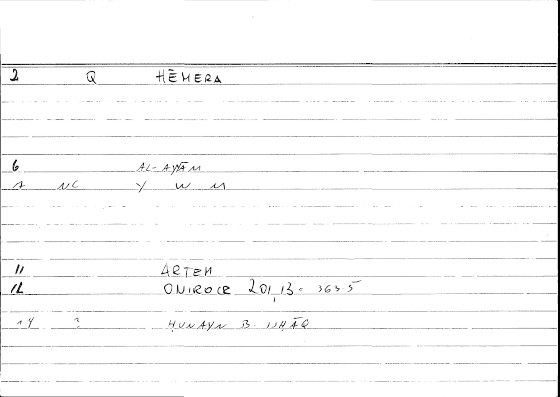 2 Q HĒMERA
6 AL-AYYĀM
1 NC Y W M
11 ARTEM
12 ONIROCR 201,13 - 363.5
14 ? ḤUNAYN B. ISḤĀQ